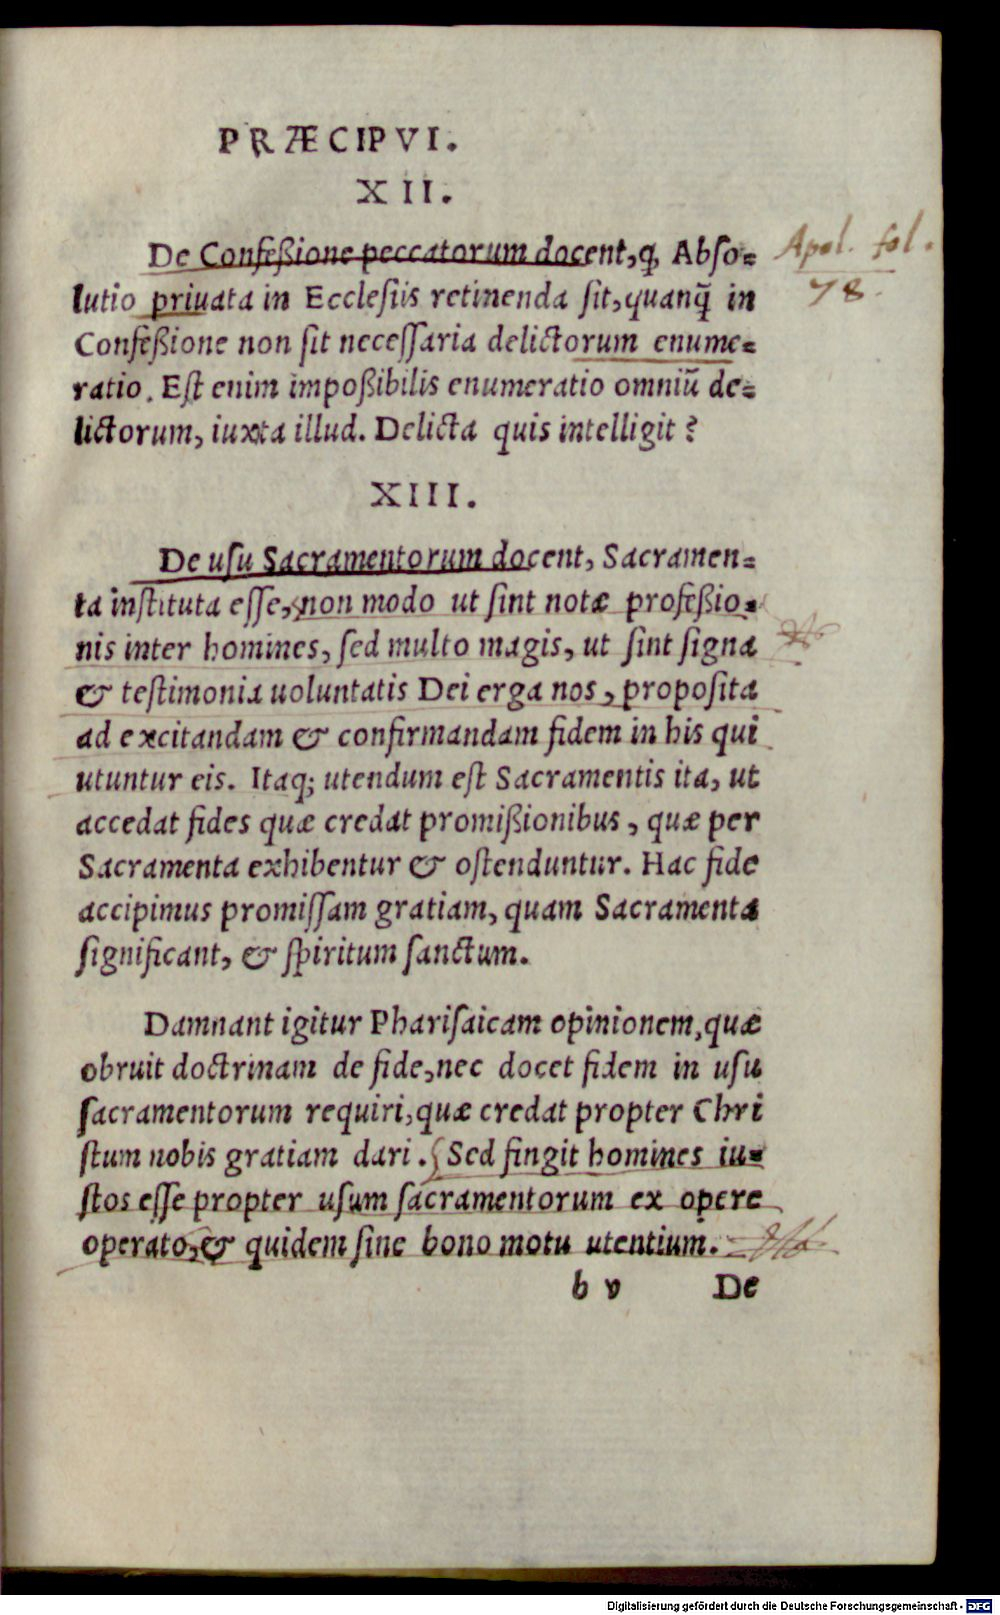 PRÆCIPVI.
XII.
De Confeßione peccatorum docent, ꝙ Abso=
lutio priuata in Ecclesiis retinenda sit, quanq̃ in
Confeßione non sit neceſſaria delictorum enume=
ratio. Eſt enim impoßibilis enumeratio omniũ de=
lictorum, iuxta illud. Delicta quis intelligit?
XIII.
De uſu Sacramentorum docent, Sacramen=
ta inſtituta eſſe, non modo ut ſint notæ profeßio=
nis inter homines, ſed multo magis, ut ſint ſigna
& teſtimonia uoluntatis Dei erga nos, propoſita
ad excitandam & confirmandam fidem in his qui
utuntur eis. Itaq; utendum eſt Sacramentis ita, ut
accedat fides quæ credat promißionibus, quæ per
Sacramenta exhibentur & oſtenduntur. Hac fide
accipimus promiſſam gratiam, quam Sacramenta
ſignificant, & ſpiritum ſanctum.
Damnant igitur Phariſaicam opinionem, quæ
obruit doctrinam de fide, nec docet fidem in uſu
ſacramentorum requiri, quæ credat propter Chri
ſtum nobis gratiam dari. Sed fingit homines iu=
ſtos eſſe propter uſum ſacramentorum ex opere
operato, & quidem ſine bono motu utentium.
b v De
Apol. fol.
78.
Digitalisierung gefördert durch die Deutsche Forschungsgemeinschaft - DFG